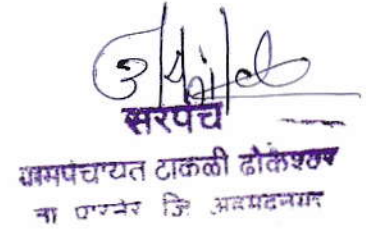 सरपंच
ग्रामपंचायत टाकळी ढोकेश्वर
ता पारनेर जि अहमदनगर